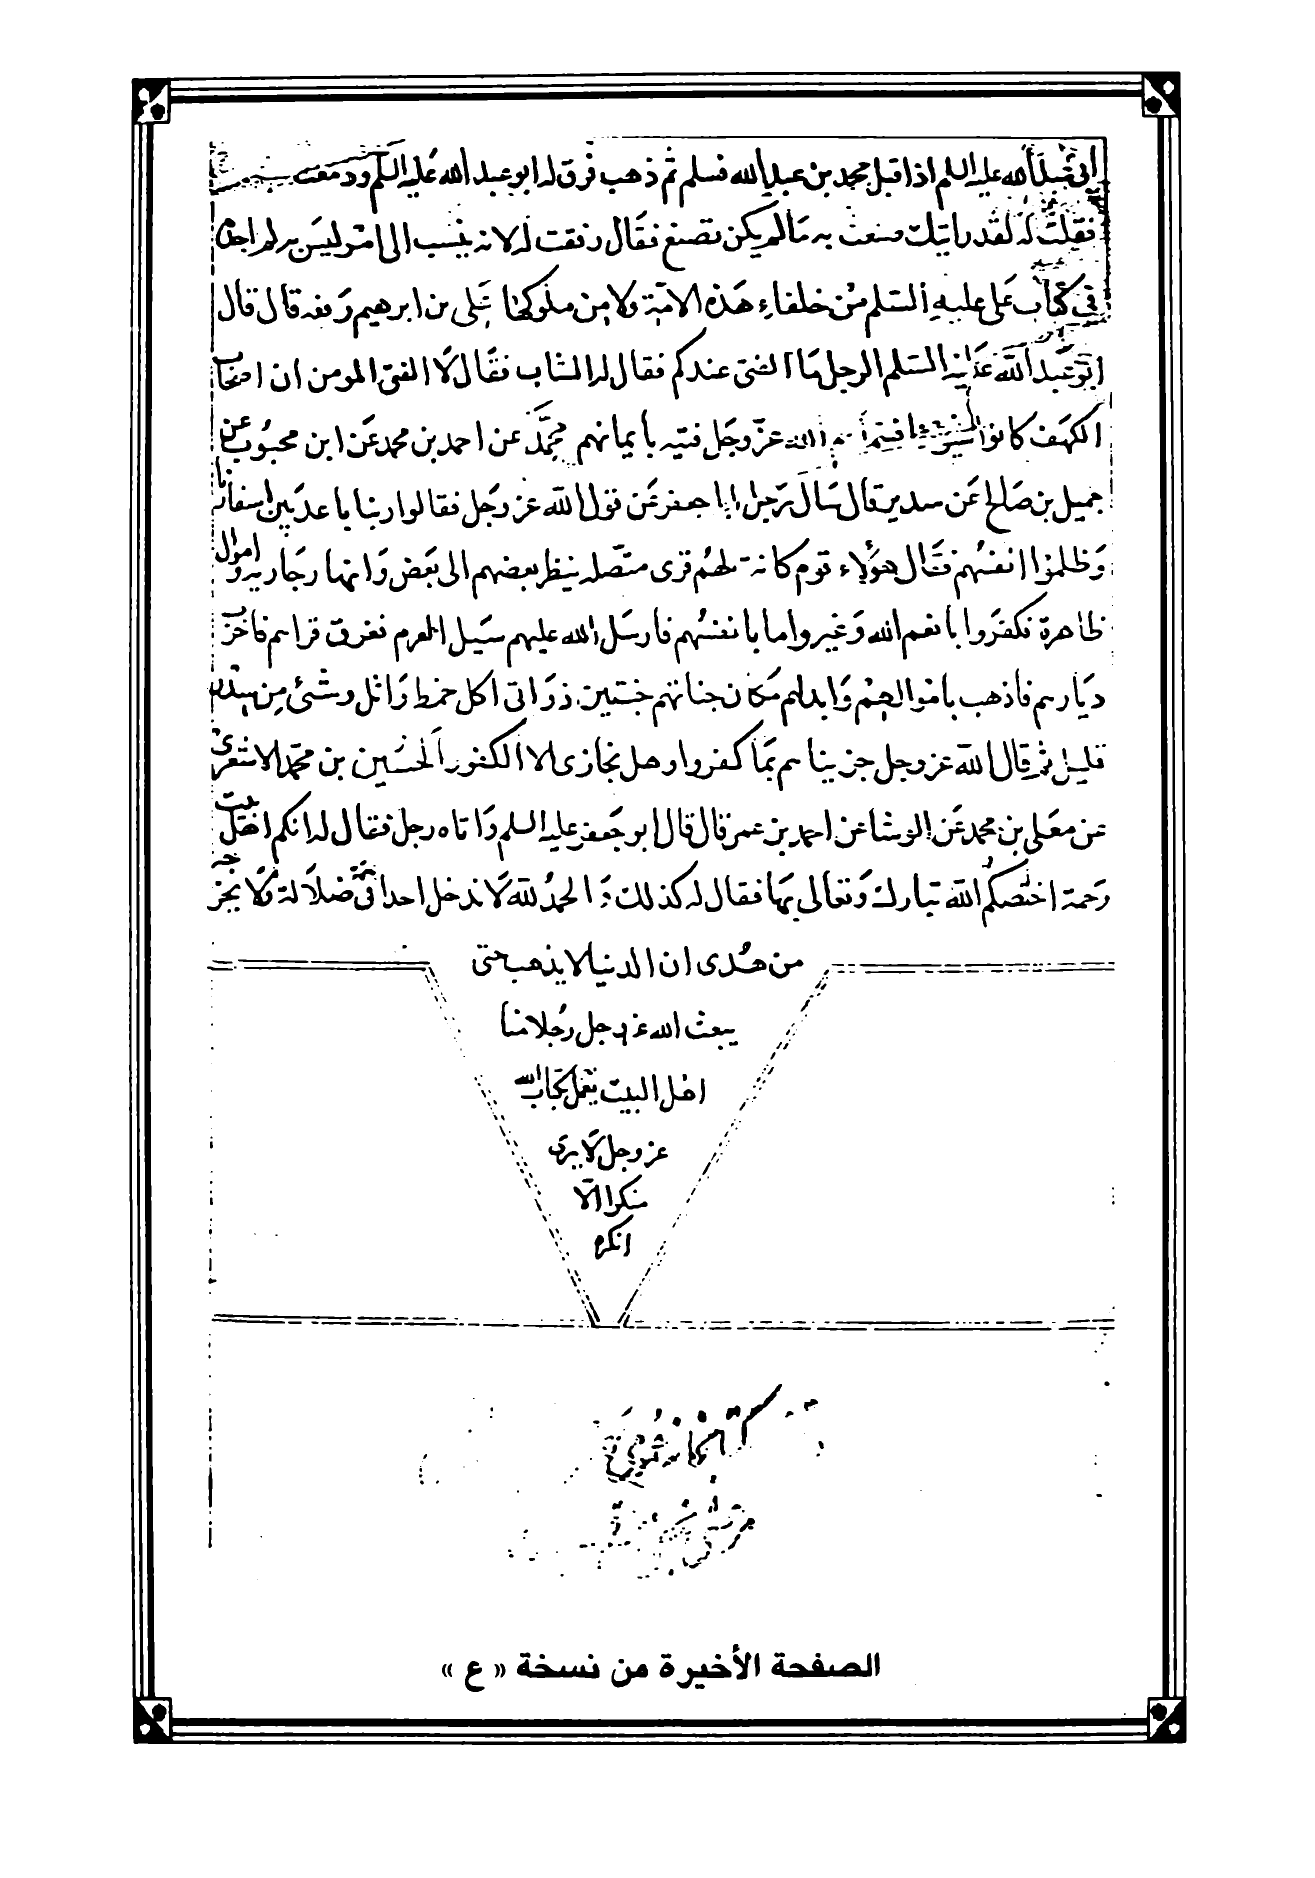 ابى عبد الله عليه السلم اذا قبل محمد بن عبد الله فسلم ثم ذهب فرق له ابو عبد الله عليه السلم ودمعت
فقلت له لقد رايتك صنعت به مالم يكن تصنع فقال رققت له لانه ينسب الى امر ليس له لم اجده
فى كتاب على عليه السلم من خلفاء هذه الامة ولا من ملوكها على بن ابرهيم رفعه قال قال
ابو عبد الله عليه السلم الرجل ما الفتى عندكم فقال له الشاب فقال لا الفتى المومن ان اصحاب
الكهف كانوا شيوخا الله عز وجل فتيه بايمانهم محمد عن احمد بن محمد عن ابن محبوب عن
جميل بن صالح عن سدير قال سال رجل ابا جعفر عن قول الله عز وجل فقالوا ربنا باعد بين اسفارنا
وظلموا انفسهم فقال هؤلاء قوم كانت لهم قرى متصله ينظر بعضهم الى بعض وانهار جاريه واموال
ظاهرة فكفروا بانعم الله وغيروا ما بانفسهم فارسل الله عليهم سيل العرم فغرق قراهم فاخرب
ديارهم فاذهب باموالهم وابدلهم مكان جناتهم جنتين ذواتى اكل خمط واثل وشئ من سدر
قليل ثم قال الله عز وجل جزيناهم بما كفروا وهل نجازى الا الكفور الحسين بن محمد الاشعرى
عن معلى بن محمد عن الوشا عن احمد بن عمر قال قال ابو جعفر عليه السلم واتاه رجل فقال له انكم اهل بيت
رحمة اختصكم الله تبارك وتعالى بها فقال له كذلك والحمد لله لا ندخل احدا فى ضلالة ولا نخرجه
من هدى ان الدنيا لا يذهب حتى
يبعث الله عز وجل رجلا منا
اهل البيت يعمل بكتاب الله
عز وجل لا يرى
منكرا الا
انكره
الصفحة الأخيرة من نسخة « ع »